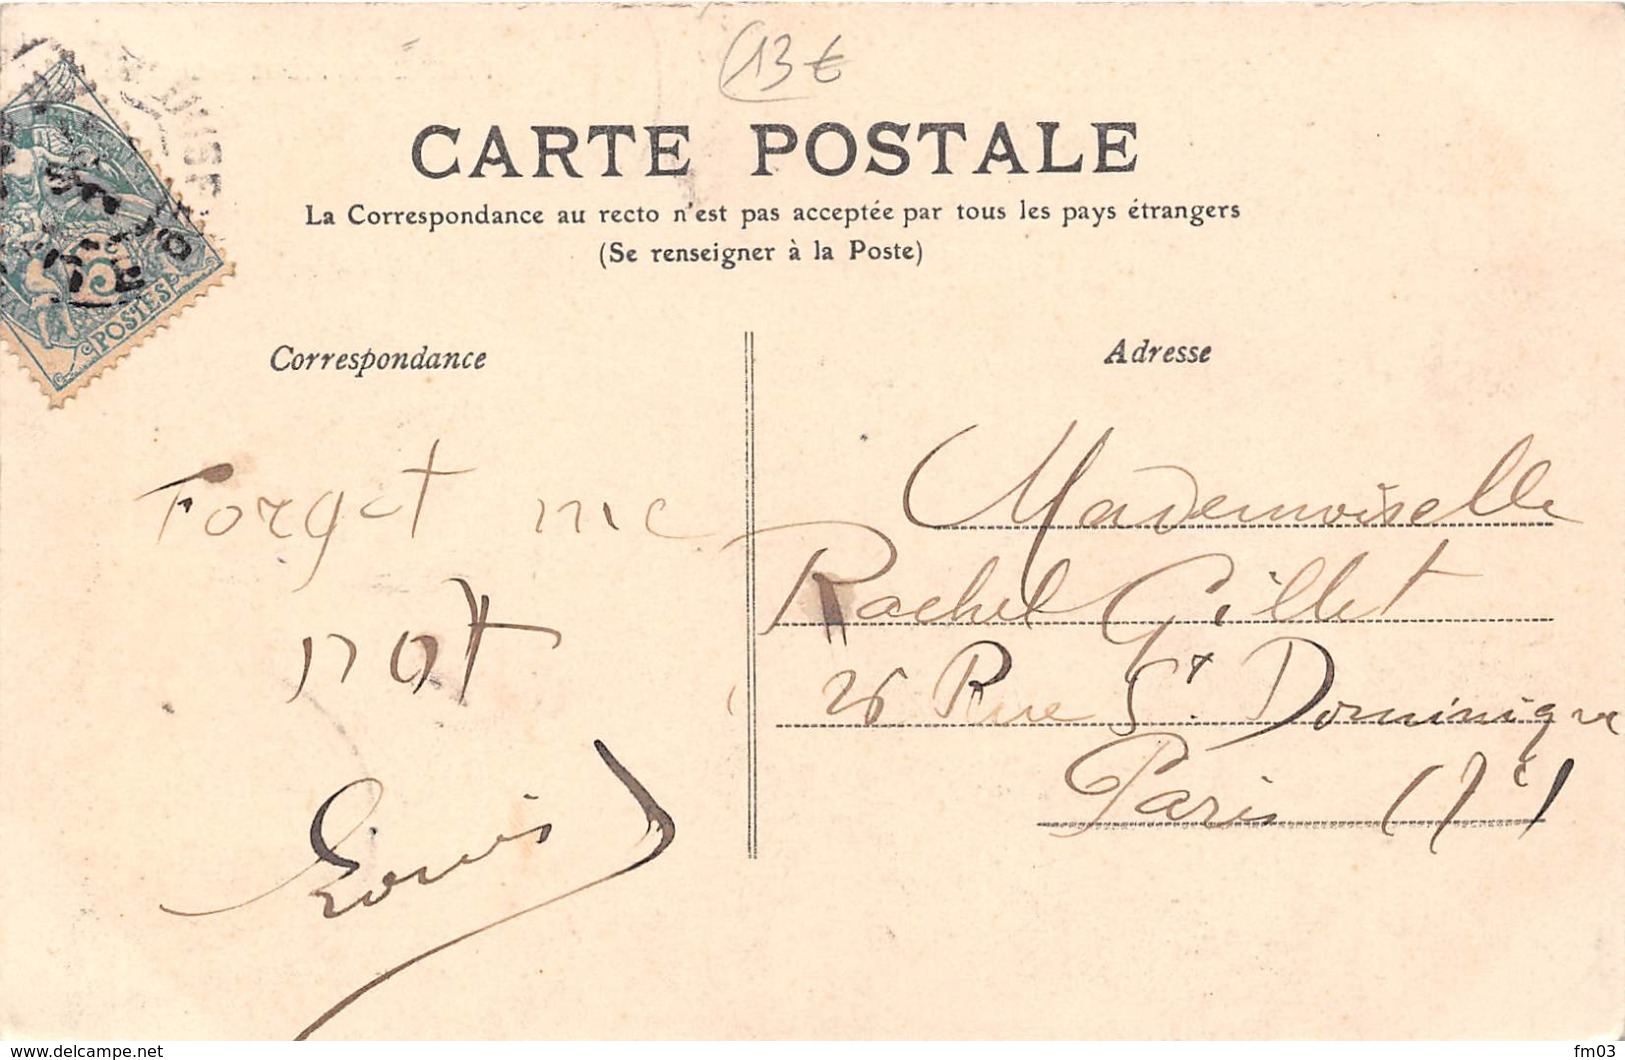 13€
CARTE POSTALE
La Correspondance au recto n'est pas acceptée par tous les pays étrangers
(Se renseigner à la Poste)
POSTES
Correspondance
Adresse
Forget me
not
Louis
Mademoiselle
Rachel Gillet
26 Rue St. Dominique
Paris
www.delcampe.net
fm03